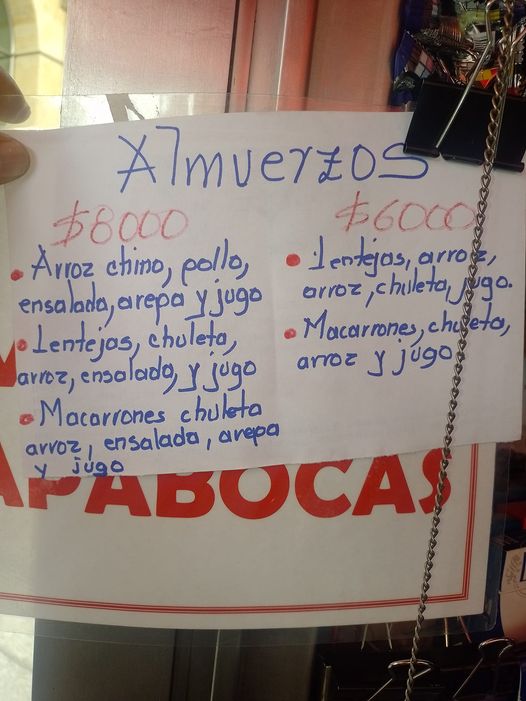 Almuerzos
$8000
• Arroz chino, pollo,
ensalada, arepa y jugo
• Lentejas, chuleta,
arroz, ensalada, y jugo
• Macarrones chuleta
arroz, ensalada, arepa
y jugo
$6000
• Lentejas, arroz,
arroz, chuleta, jugo.
• Macarrones, chuleta,
arroz y jugo
APABOCAS